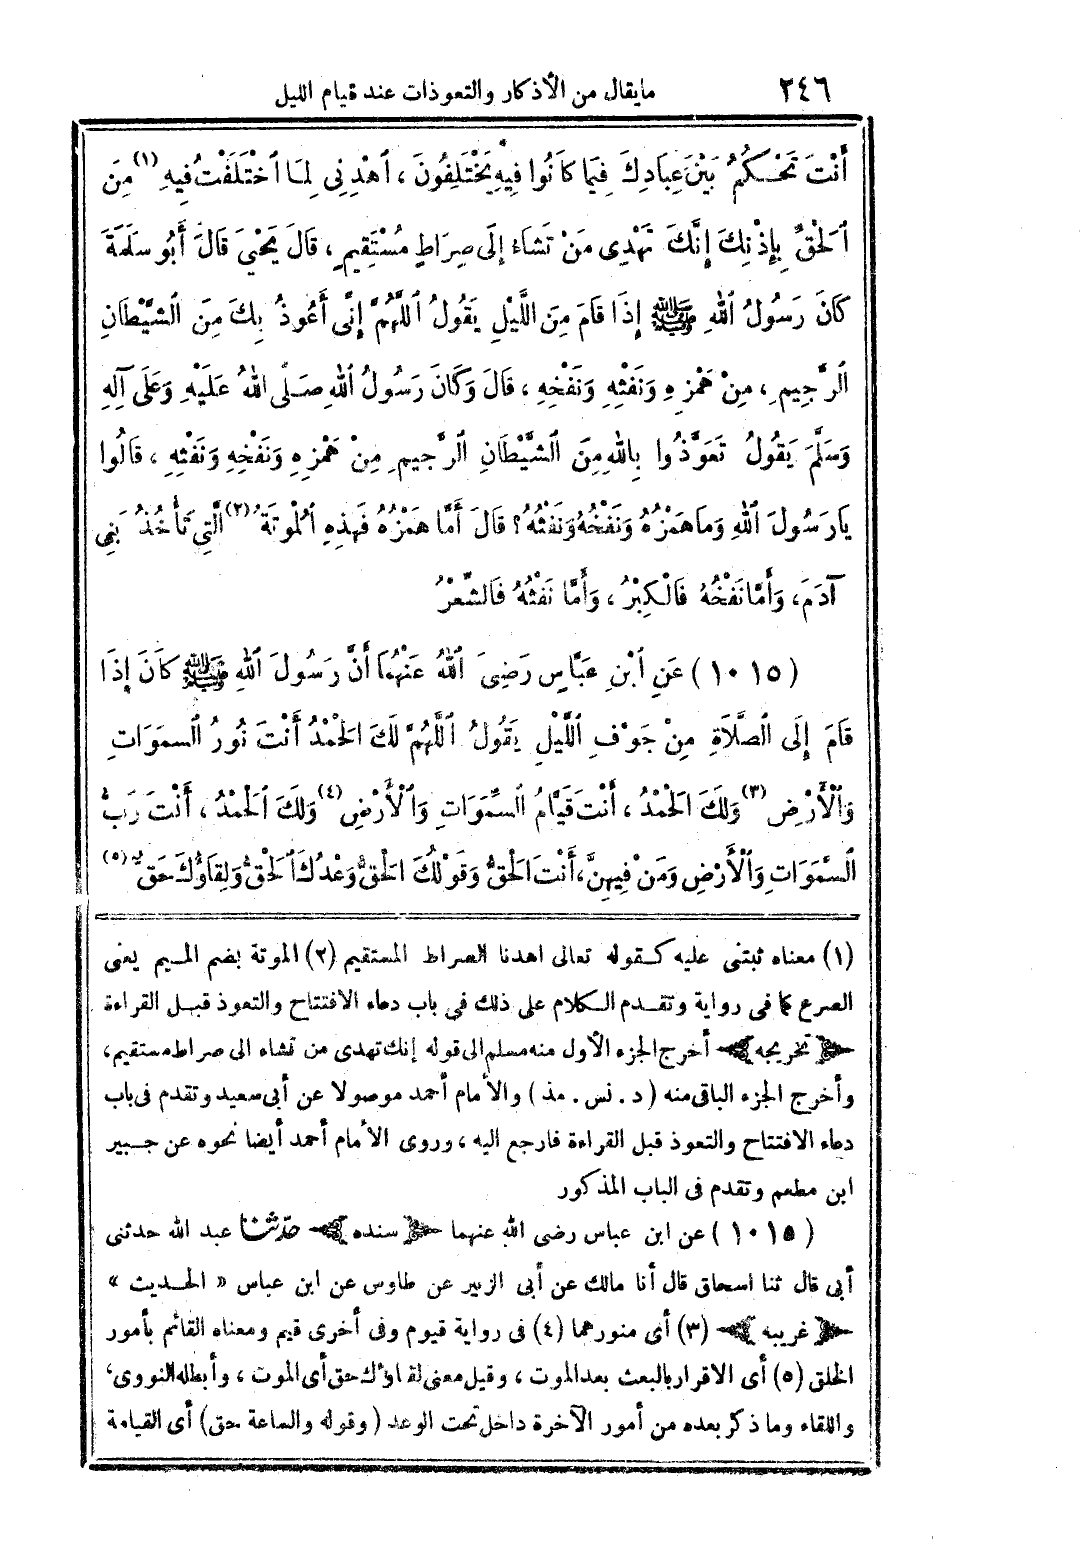 ٢٤٦ مايقال من الأذكار والتعوذات عند قيام الليل
أَنْتَ تَحْكُمُ بَيْنَ عِبَادِكَ فِيمَا كَانُوا فِيهِ يَخْتَلِفُونَ ، اَهْدِنِى لِمَا اَخْتَلَفْتُ فِيهِ (١) مِنَ
اَلْحَقِّ بِإِذْنِكَ إِنَّكَ تَهْدِى مَنْ تَشَاءُ إِلَى صِرَاطٍ مُسْتَقِيمٍ ، قَالَ يَحْيَ قَالَ أَبُو سَلَمَةَ
كَانَ رَسُولُ اَللهِ ﷺ إِذَا قَامَ مِنَ اللَّيْلِ يَقُولُ اَللَّهُمَّ إِنِّى أَعُوذُ بِكَ مِنَ الشَّيْطَانِ
اَلرَّجِيمِ ، مِنْ هَمْزِهِ وَنَفْثِهِ وَنَفْخِهِ ، قَالَ وَكَانَ رَسُولُ اَللهِ صَلَّى اللهُ عَلَيْهِ وَعَلَى آلِهِ
وَسَلَّمَ يَقُولُ تَعَوَّذُوا بِاللهِ مِنَ الشَّيْطَانِ اَلرَّجِيمِ مِنْ هَمْزِهِ وَنَفْخِهِ وَنَفْثِهِ ، قَالُوا
يَارَسُولَ اَللهِ وَمَا هَمْزُهُ وَنَفْخُهُ وَنَفْثُهُ ؟ قَالَ أَمَّا هَمْزُهُ فَهَذِهِ اَلْمُوتَةُ (٢) الَّتِى تَأْخُذُ بَنِى
آدَمَ، وَأَمَّا نَفْخُهُ فَالْكِبْرُ ، وَأَمَّا نَفْثُهُ فَالشِّعْرُ
(١٠١٥) عَنِ اَبْنِ عَبَّاسٍ رَضِىَ اَللهُ عَنْهُمَا أَنَّ رَسُولَ اَللهِ ﷺ كَانَ إِذَا
قَامَ إِلَى الصَّلَاةِ مِنْ جَوْفِ اللَّيْلِ يَقُولُ اَللَّهُمَّ لَكَ الْحَمْدُ أَنْتَ نُورُ السمَوَاتِ
وَاْلْأَرْضِ (٣) وَلَكَ الْحَمْدُ ، أَنْتَ قَيَّامُ السَّمَوَاتِ وَاْلْأَرْضِ (٤) وَلَكَ اَلْحَمْدُ ، أَنْتَ رَبُّ
السَّمَوَاتِ وَاْلْأَرْضِ وَمَنْ فِيهِنَّ، أَنْتَ الْحَقُّ وَقَوْلُكَ الْحَقُّ وَعْدُكَ اَلْحَقُّ وَلِقَاؤُكَ حَقٌّ (٥)
(١) معناه ثبتنى عليه كقوله تعالى اهدنا الصراط المستقيم (٢) الموتة بضم الميم يعنى
الصرع كما فى رواية وتقدم الكلام على ذلك فى باب دعاء الافتتاح والتعوذ قبل القراءة
تخريجه أخرج الجزء الأول منه مسلم الى قوله إنك تهدى من تشاء الى صراط مستقيم،
وأخرج الجزء الباقى منه (د . نس . مذ) والأمام أحمد موصولا عن أبى سعيد وتقدم فى باب
دعاء الافتتاح والتعوذ قبل القراءة فارجع اليه ، وروى الأمام أحمد أيضا نحوه عن جبير
ابن مطعم وتقدم فى الباب المذكور
(١٠١٥) عن ابن عباس رضى الله عنهما سنده حدّثنا عبد الله حدثنى
أبى قال ثنا اسحاق قال أنا مالك عن أبى الزبير عن طاوس عن ابن عباس « الحديث »
غريبه (٣) أى منورهما (٤) فى رواية قيوم وفى أخرى قيم ومعناه القائم بأمور
الخلق (٥) أى الاقرار بالبعث بعد الموت ، وقيل معنى لقاؤك حق أى الموت ، وأبطله النووى ،
واللقاء وما ذكر بعده من أمور الآخرة داخل تحت الوعد (وقوله والساعة حق) أى القيامة